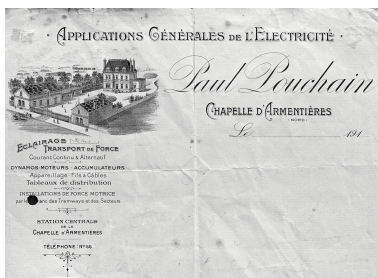 · APPLICATIONS GÉNÉRALES DE L'ÉLECTRICITÉ ·
Paul Pouchain
CHAPELLE D'ARMENTIÈRES
(NORD)
Le 191
ECLAIRAGE
TRANSPORT DE FORCE
Courant Continu & Alternatif
DYNAMOS-MOTEURS - ACCUMULATEURS
Appareillage - Fils & Câbles
Tableaux de distribution
INSTALLATIONS DE FORCE MOTRICE
par le des Tramways et des Secteurs
STATION CENTRALE
DE LA
CHAPELLE D'ARMENTIÈRES
TÉLÉPHONE : N° 66